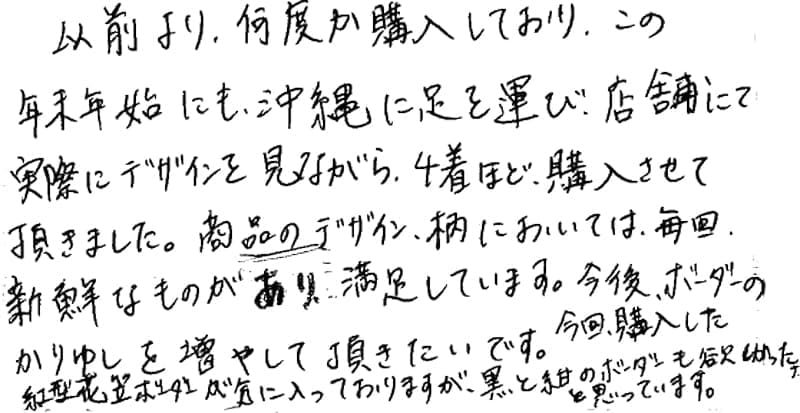 以前より、何度か購入しており、この
年末年始にも、沖縄に足を運び、店舗にて
実際にデザインを見ながら、4着ほど、購入させて
頂きました。商品のデザイン、柄においては、毎回、
新鮮なものがあり、満足しています。今後、ボーダーの
かりゆしを増やして頂きたいです。今回、購入した
紅型花笠ボーダーが気に入っておりますが、黒と紺のボーダーも欲しかった
と思っています。